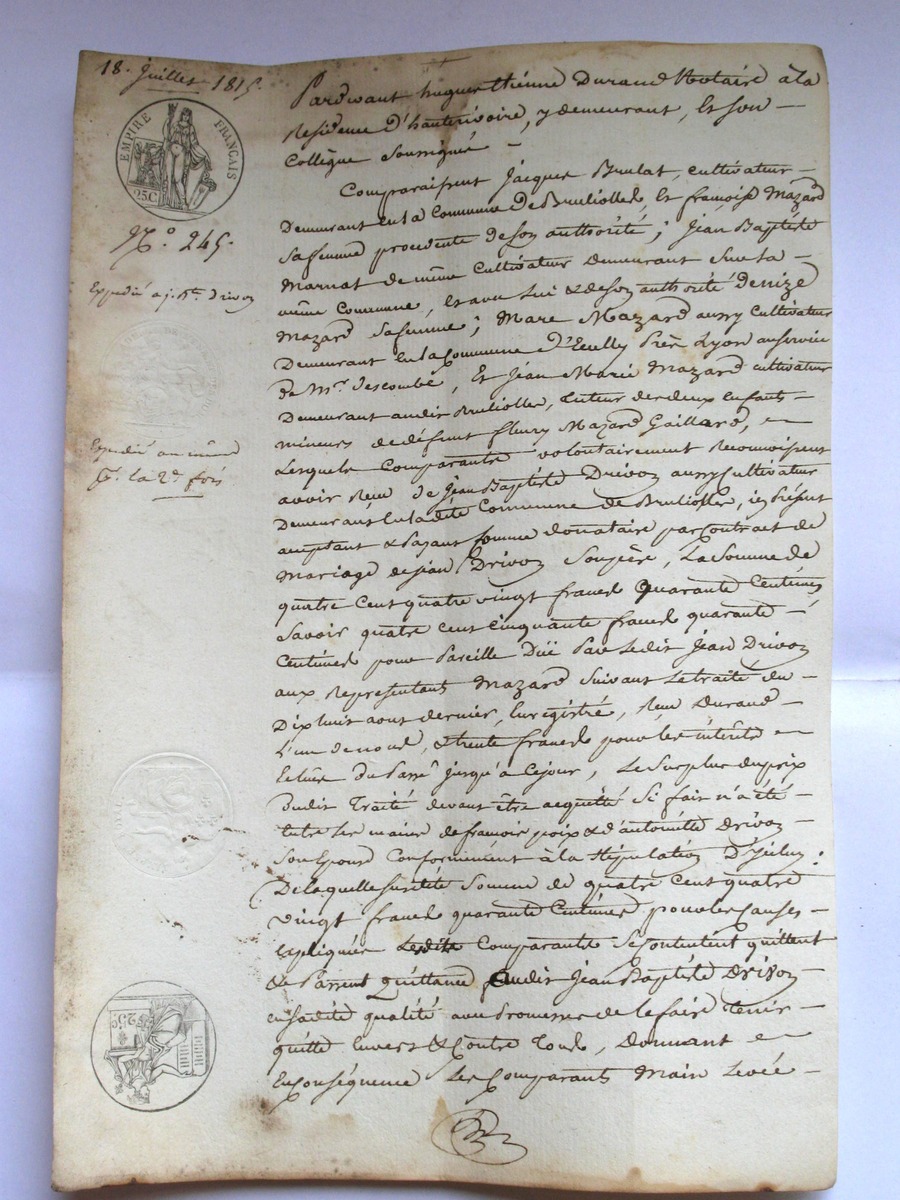 18. Juillet 1815.
EMPIRE FRANÇAIS
25C
N.° 245.
Expedié a j. Bte. drivon
Expedié au même
la 2.de fois
25C
Pardevant hugues Etienne Durand Notaire à la
Residence d'hauterivoire, y demeurant, et son
Collègue Soussigné
Comparaissent Jacques Brulat, cultivateur
Demeurant en la Commune de Brulliolles, et françoise Mazard
Sa femme procedente de son authorité; Jean Baptiste
Marnat de même Cultivateur demeurant sur la
même Commune, et avec lui & de son authorité Denize
Mazard Sa femme; Marc Mazard aussy Cultivateur
Demeurant en la Commune d'Ecully près Lyon au service
de Mr. descombe, Et Jean Marie Mazard cultivateur
Demeurant audit Brulioller, tuteur des deux enfants
mineurs de défunt fleury Mazard Gaillard,
Lesquels Comparants volontairement Reconnoissent
avoir Reçu de Jean Baptiste Drivon aussy Cultivateur
Demeurant en la dite Commune de Brulioller, icy présent
acceptant & payant comme donataire par Contrat de
Mariage de jean Drivon Son père, La Somme de
quatre Cent quatre vingt francs quarante Centimes
Savoir quatre cent cinquante francs quarante
Centimes pour Pareille Düe Par Ledit Jean Drivon
aux Representants Mazard Suivant Le traité du
Dix huit aout dernier, Enregistré, Reçu Durand
L'un de nous, & trente francs pour les intérêts
Echus du Passé jusqu'à ce jour, Le Surplus du prix
dudit Traité devant être acquitté Si fait n'a été
entre les mains de françois poix & d'antoinette Drivon
Son Epouse Conformément à la Stipulation D'icelui:
De laquelle susdite Somme de quatre Cent quatre
vingt francs quarante Centimes pour les Causes
Expliquées Lesdits Comparants Se contentent quittent
& Passent quittance audit Jean Baptiste Drivon
en sadite qualité avec Promesse de le faire Tenir
quitte Envers & Contre Tous, Donnant
En conséquence Les Comparants Main Levée